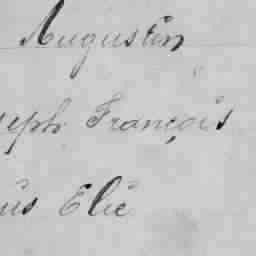 Augustin
seph François
us Elie